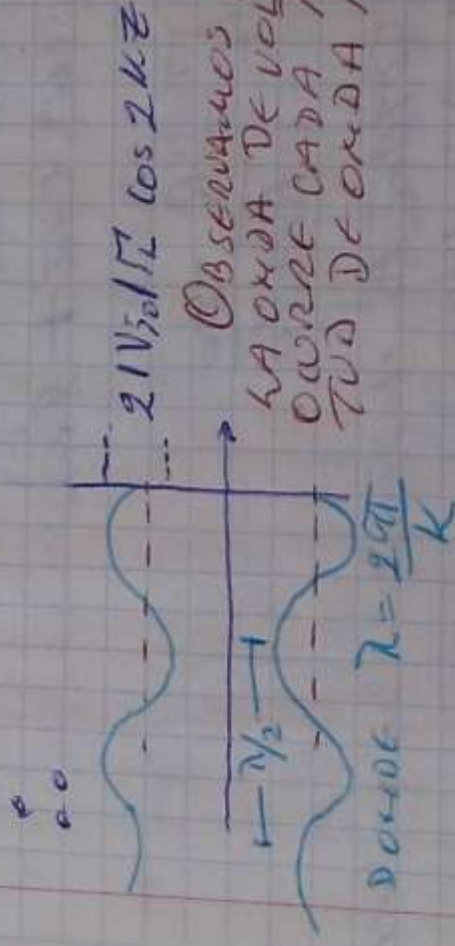 2|V_io|Γ_L cos 2kz
OBSERVAMOS
LA ONDA DE
OCURRE CADA
TUD DE ONDA
λ/2
DONDE λ = 2π/K